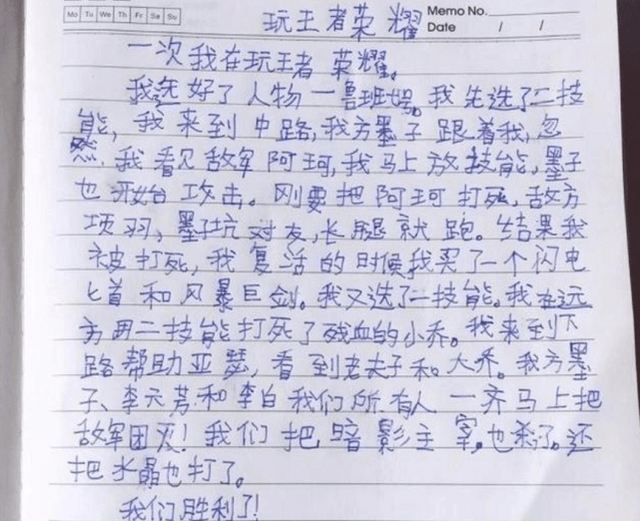 Mo Tu We Th Fr Sa Su
玩王者荣耀
Memo No.
Date / /
一次我在玩王者荣耀。
我选好了人物一鲁班号。我先选了二技
能,我来到中路,我方墨子跟着我,忽
然,我看见敌军阿珂,我马上放技能,墨子
也开始攻击。刚要把阿珂打死,敌方
项羽、墨坑对友,长腿就跑。结果我
被打死,我复活的时候我买了一个闪电
匕首和风暴巨剑。我又选了二技能。我在远
方用二技能打死了残血的小乔。我来到下
路帮助亚瑟,看到老夫子和大乔。我方墨
子、李元芳和李白我们所有人一齐马上把
敌军团灭!我们把暗影主宰,也杀了。还
把水晶也打了。
我们胜利了!